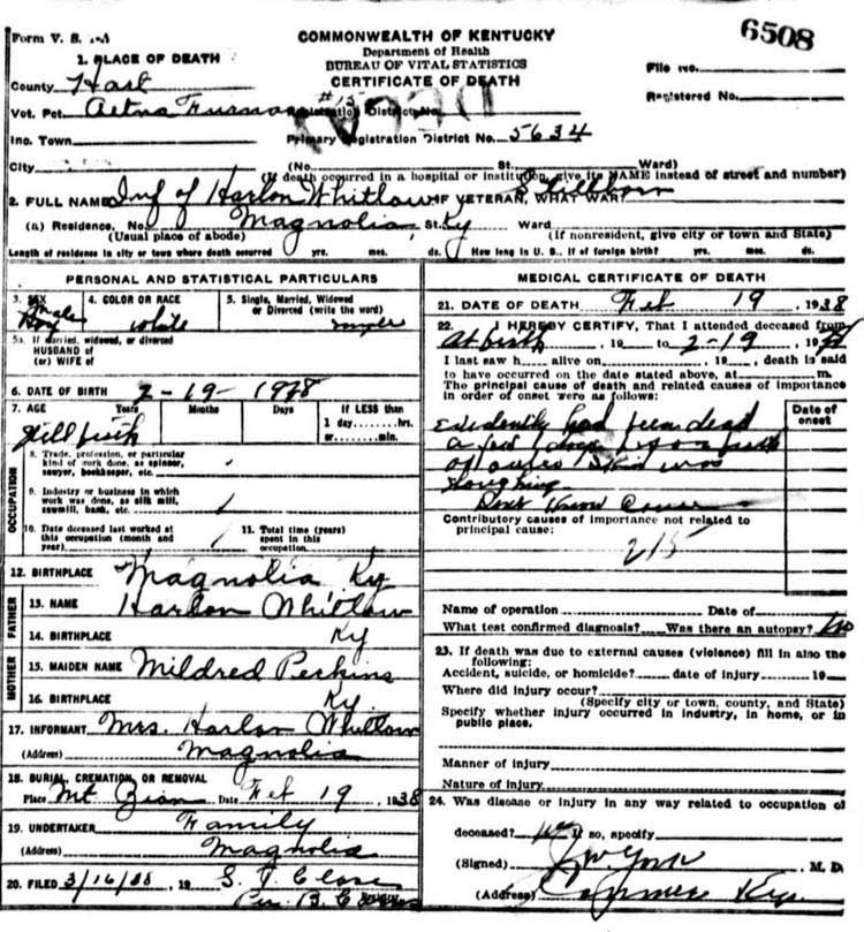 6508
Form V. S.
COMMONWEALTH OF KENTUCKY
Department of Health
BUREAU OF VITAL STATISTICS
CERTIFICATE OF DEATH
File No.
Registered No.
1. PLACE OF DEATH
County Hart
Vot. Pct. Aetna Furnace #15 Registration District No.
Inc. Town Primary Registration District No. 5634
City (No. St. Ward)
(If death occurred in a hospital or institution, give its NAME instead of street and number)
2. FULL NAME Inf of Harlon Whitlow IF VETERAN, WHAT WAR? Stillborn
(a) Residence, No. Magnolia, St. Ky Ward
(Usual place of abode) (If nonresident, give city or town and State)
Length of residence in city or town where death occurred yrs. mos. ds. How long in U. S., if of foreign birth? yrs. mos. ds.
PERSONAL AND STATISTICAL PARTICULARS
3. SEX male Boy 4. COLOR OR RACE white 5. Single, Married, Widowed or Divorced (write the word) single
5a. If married, widowed, or divorced
HUSBAND of
(or) WIFE of
6. DATE OF BIRTH 2-19-1938
7. AGE Years Months Days If LESS than
1 day......hrs.
or......min.
OCCUPATION
8. Trade, profession, or particular
kind of work done, as spinner,
sawyer, bookkeeper, etc.
9. Industry or business in which
work was done, as silk mill,
sawmill, bank, etc.
10. Date deceased last worked at
this occupation (month and
year)
11. Total time (years)
spent in this
occupation
12. BIRTHPLACE Magnolia Ky
FATHER
13. NAME Harlon Whitlow
14. BIRTHPLACE Ky
MOTHER
15. MAIDEN NAME Mildred Perkins
16. BIRTHPLACE Ky.
17. INFORMANT Mrs. Harlon Whitlow
(Address) Magnolia
18. BURIAL, CREMATION, OR REMOVAL
Place Mt Zion Date Feb 19, 1938
19. UNDERTAKER Family
(Address) Magnolia
20. FILED 3/16/38, 19
MEDICAL CERTIFICATE OF DEATH
21. DATE OF DEATH Feb 19, 1938
22. I HEREBY CERTIFY, That I attended deceased from
At birth, 19 to 2-19, 19
I last saw h alive on , 19 , death is said
to have occurred on the date stated above, at m.
The principal cause of death and related causes of importance
in order of onset were as follows:
Date of
onset
Evidently had been dead
a few days before birth
skin was
sloughing
Dont know Cause
Contributory causes of importance not related to
principal cause:
215
Name of operation Date of
What test confirmed diagnosis? Was there an autopsy? No
23. If death was due to external causes (violence) fill in also the
following:
Accident, suicide, or homicide? date of injury 19
Where did injury occur?
(Specify city or town, county, and State)
Specify whether injury occurred in industry, in home, or in
public place.
Manner of injury
Nature of injury
24. Was disease or injury in any way related to occupation of
deceased? No If so, specify
(Signed) , M. D.
(Address) Ky.